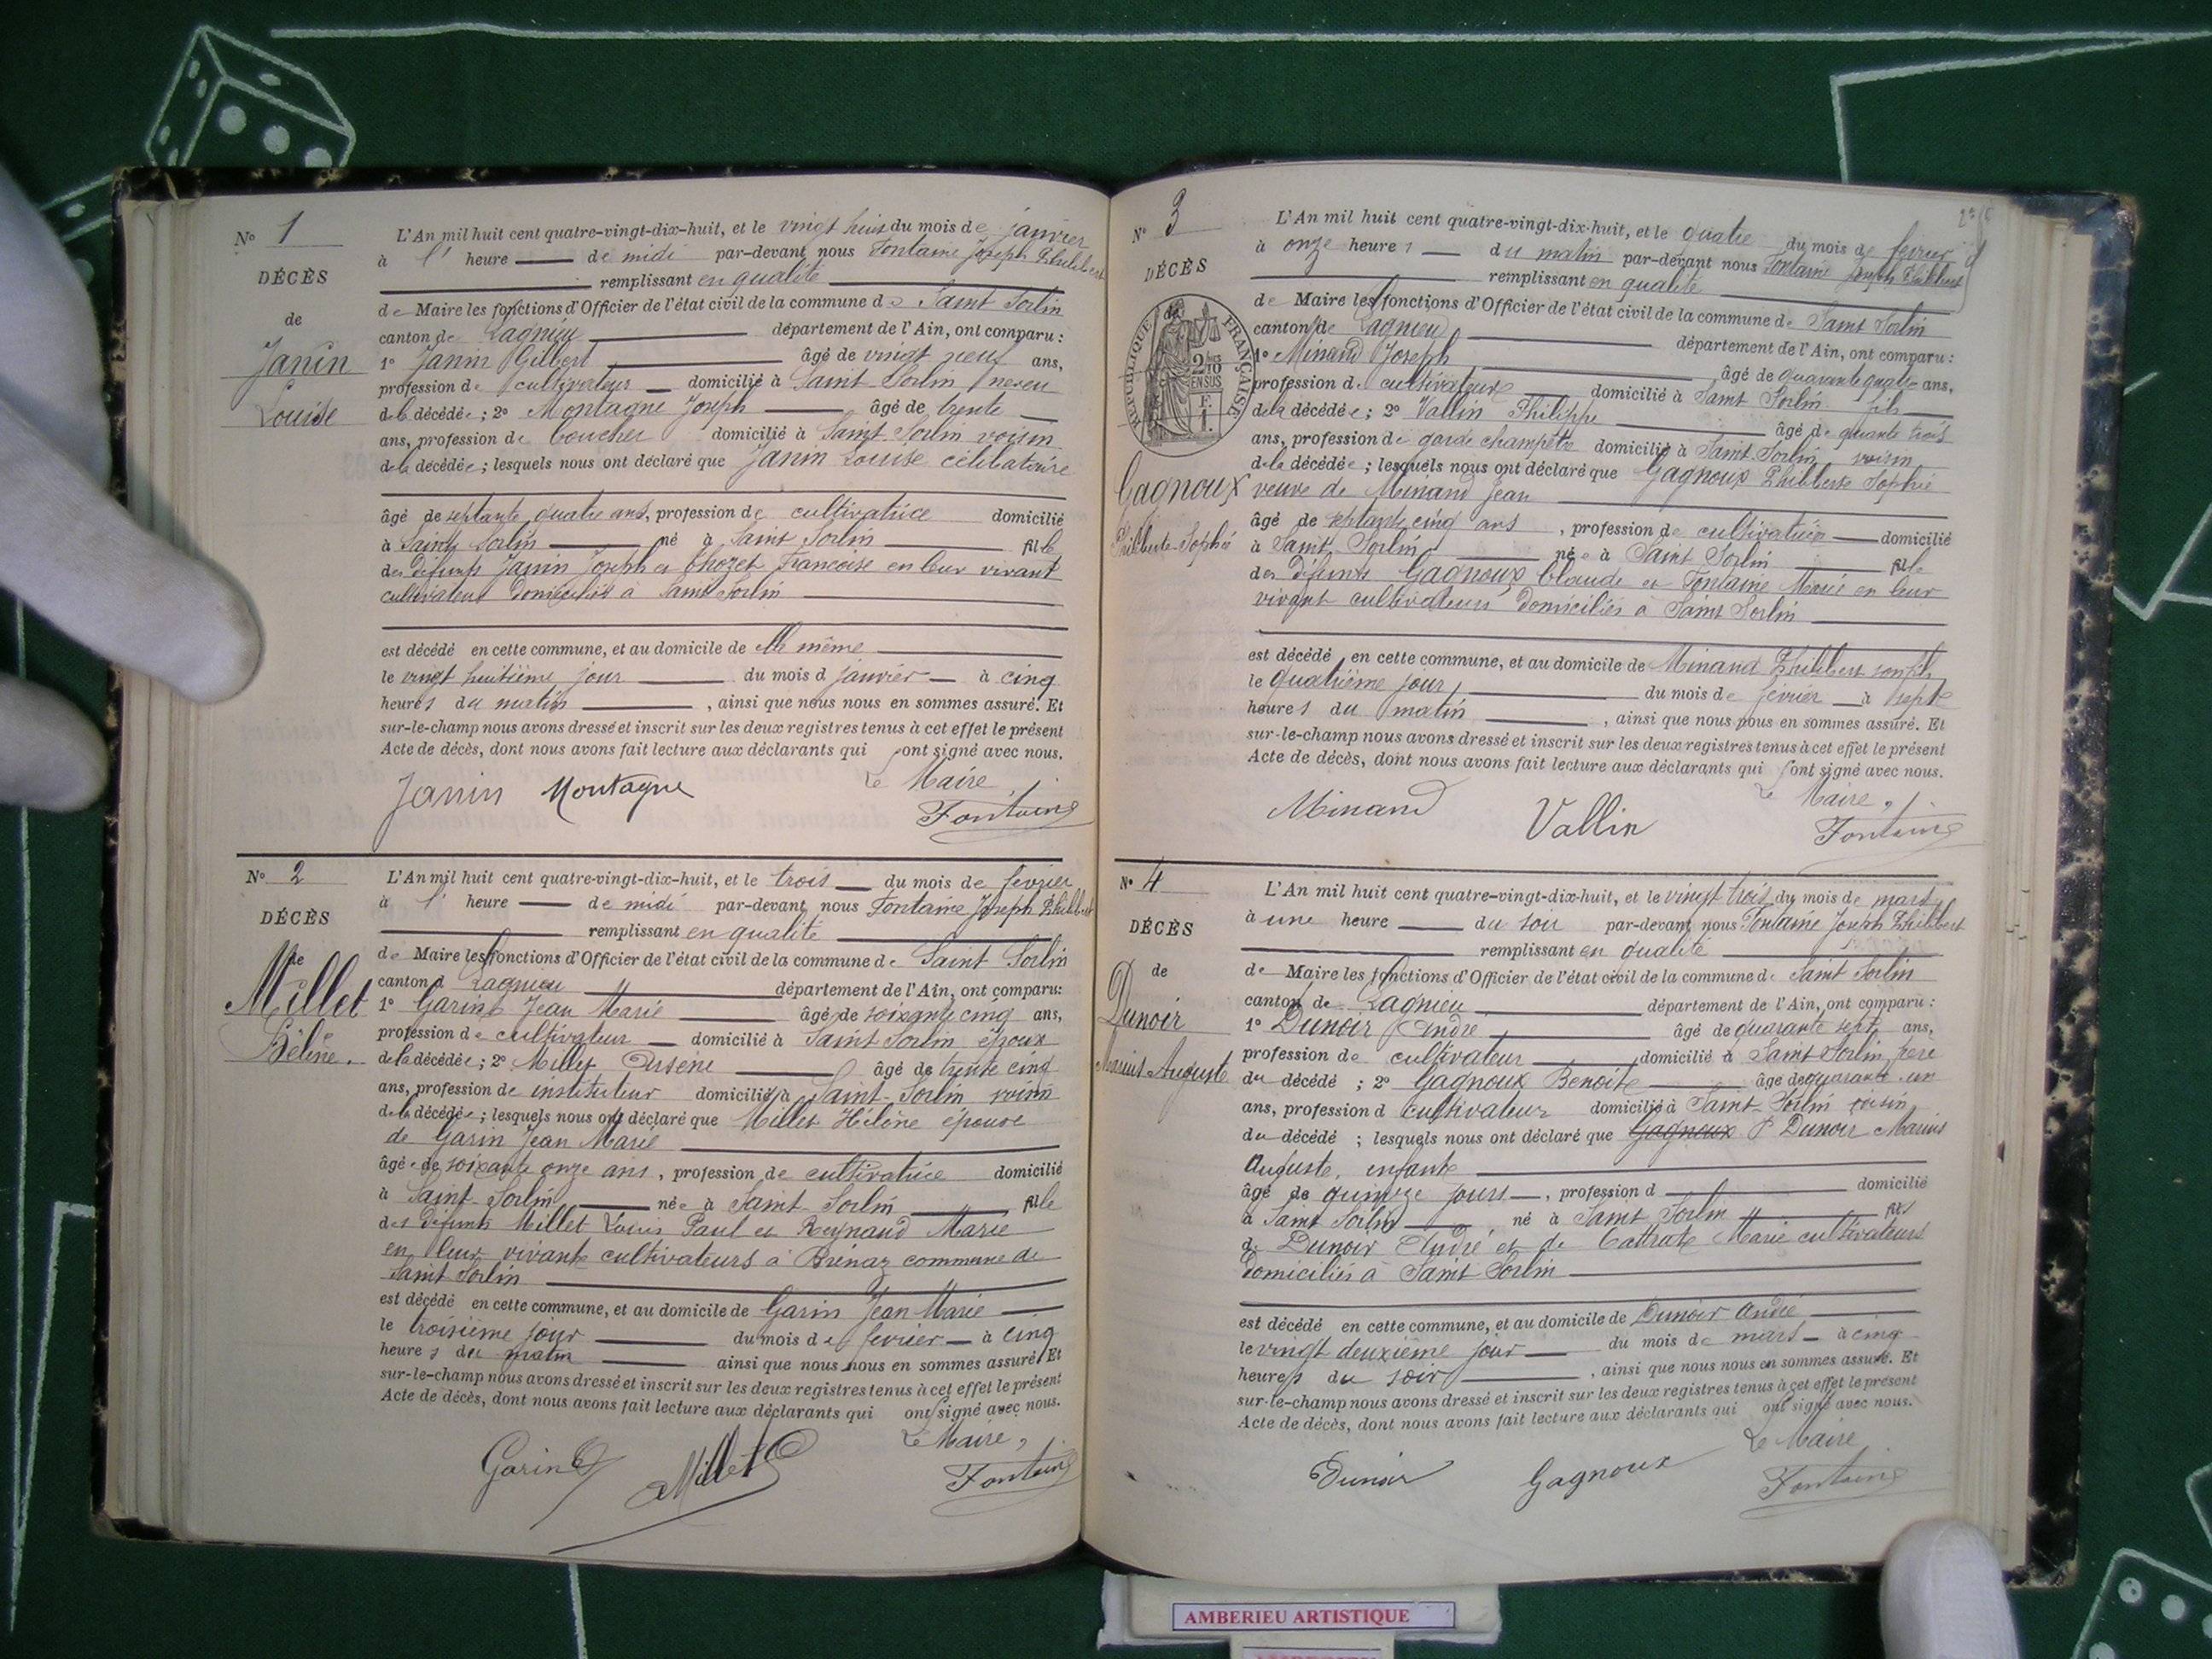 N° 1
DÉCÈS
de
Janin
Louise
L'An mil huit cent quatre-vingt-dix-huit, et le vingt huit du mois de janvier
à l' heure de midi par-devant nous Fontaine Joseph Philibert
remplissant en qualité
de Maire les fonctions d'Officier de l'état civil de la commune de Saint Sorlin
canton de Lagnieu département de l'Ain, ont comparu :
1° Janin Gilbert âgé de vingt neuf ans,
profession de cultivateur domicilié à Saint-Sorlin neveu
de la décédée ; 2° Montagne Joseph âgé de trente
ans, profession de boucher domicilié à Saint-Sorlin voisin
de la décédée ; lesquels nous ont déclaré que Janin Louise célibataire
âgé de septante quatre ans, profession de cultivatrice domicilié
à Saint Sorlin né à Saint Sorlin fille
des défunts Janin Joseph et Chozet Françoise en leur vivant
cultivateurs domiciliés à Saint Sorlin
est décédé en cette commune, et au domicile de elle même
le vingt huitième jour du mois d janvier à cinq
heures du matin , ainsi que nous nous en sommes assuré. Et
sur-le-champ nous avons dressé et inscrit sur les deux registres tenus à cet effet le présent
Acte de décès, dont nous avons fait lecture aux déclarants qui ont signé avec nous.
Janin Montagne Le Maire,
Fontaine
N° 2
DÉCÈS
de
Millet
Hélène.
L'An mil huit cent quatre-vingt-dix-huit, et le trois du mois de fevrier
à l' heure de midi par-devant nous Fontaine Joseph Philibert
remplissant en qualité
de Maire les fonctions d'Officier de l'état civil de la commune de Saint Sorlin
canton d Lagnieu département de l'Ain, ont comparu:
1° Garin Jean Marie âgé de soixante cinq ans,
profession de cultivateur domicilié à Saint Sorlin époux
de la décédée ; 2° Millet Arsène âgé de trente cinq
ans, profession de instituteur domicilié à Saint-Sorlin voisin
de la décédée ; lesquels nous ont déclaré que Millet Hélène épouse
de Garin Jean Marie
âgée de soixante onze ans, profession de cultivatrice domicilié
à Saint-Sorlin née à Saint-Sorlin fille
des défunts Millet Louis Paul et Reynaud Marie
en leur vivant cultivateurs à Brénaz commune de
Saint Sorlin
est décédé en cette commune, et au domicile de Garin Jean Marie
le troisième jour du mois de fevrier à cinq
heures du matin ainsi que nous nous en sommes assuré. Et
sur-le-champ nous avons dressé et inscrit sur les deux registres tenus à cet effet le présent
Acte de décès, dont nous avons fait lecture aux déclarants qui ont signé avec nous.
Le Maire,
Garin Millet Fontaine
N° 3
DÉCÈS
de
RÉPUBLIQUE FRANÇAISE
Gagnoux
Philiberte-Sophie
L'An mil huit cent quatre-vingt-dix-huit, et le quatre du mois de fevrier
à onze heures du matin par-devant nous Fontaine Joseph Philibert
remplissant en qualité
de Maire les fonctions d'Officier de l'état civil de la commune de Saint Sorlin
canton de Lagnieu département de l'Ain, ont comparu :
1° Minand Joseph âgé de quarante quatre ans,
profession de cultivateur domicilié à Saint Sorlin fils
de la décédée ; 2° Vallin Philippe âgé de quante trois
ans, profession de garde champêtre domicilié à Saint-Sorlin voisin
de la décédée ; lesquels nous ont déclaré que Gagnoux Philiberte Sophie
veuve de Minand Jean
âgé de septante cinq ans , profession de cultivatrice domicilié
à Saint Sorlin née à Saint Sorlin fille
des défunts Gagnoux Claude et Fontaine Marie en leur
vivant cultivateurs domiciliés à Saint Sorlin
est décédé en cette commune, et au domicile de Minand Philibert son fils
le quatrième jour du mois de fevrier à sept
heures du matin , ainsi que nous nous en sommes assuré. Et
sur-le-champ nous avons dressé et inscrit sur les deux registres tenus à cet effet le présent
Acte de décès, dont nous avons fait lecture aux déclarants qui ont signé avec nous.
Le Maire,
Minand Vallin Fontaine
N° 4
DÉCÈS
de
Dunoir
Marius-Auguste
L'An mil huit cent quatre-vingt-dix-huit, et le vingt trois du mois de mars
à une heure du soir par-devant nous Fontaine Joseph Philibert
remplissant en qualité
de Maire les fonctions d'Officier de l'état civil de la commune de Saint Sorlin
canton de Lagnieu département de l'Ain, ont comparu :
1° Dunoir André âgé de quarante sept ans,
profession de cultivateur domicilié à Saint Sorlin père
du décédé ; 2° Gagnoux Benoite âgé de quarante un
ans, profession d cultivateur domicilié à Saint-Sorlin voisin
du décédé ; lesquels nous ont déclaré que Gagnoux Dunoir Marius
Auguste, enfant
âgé de quinze jours , profession d domicilié
à Saint Sorlin né à Saint Sorlin fils
de Dunoir André et de Marie cultivateurs
domiciliés à Saint-Sorlin
est décédé en cette commune, et au domicile de Dunoir André
le vingt deuxième jour du mois de mars à cinq
heures du soir , ainsi que nous nous en sommes assuré. Et
sur-le-champ nous avons dressé et inscrit sur les deux registres tenus à cet effet le présent
Acte de décès, dont nous avons fait lecture aux déclarants qui ont signé avec nous.
Le Maire
Dunoir Gagnoux Fontaine
AMBERIEU ARTISTIQUE